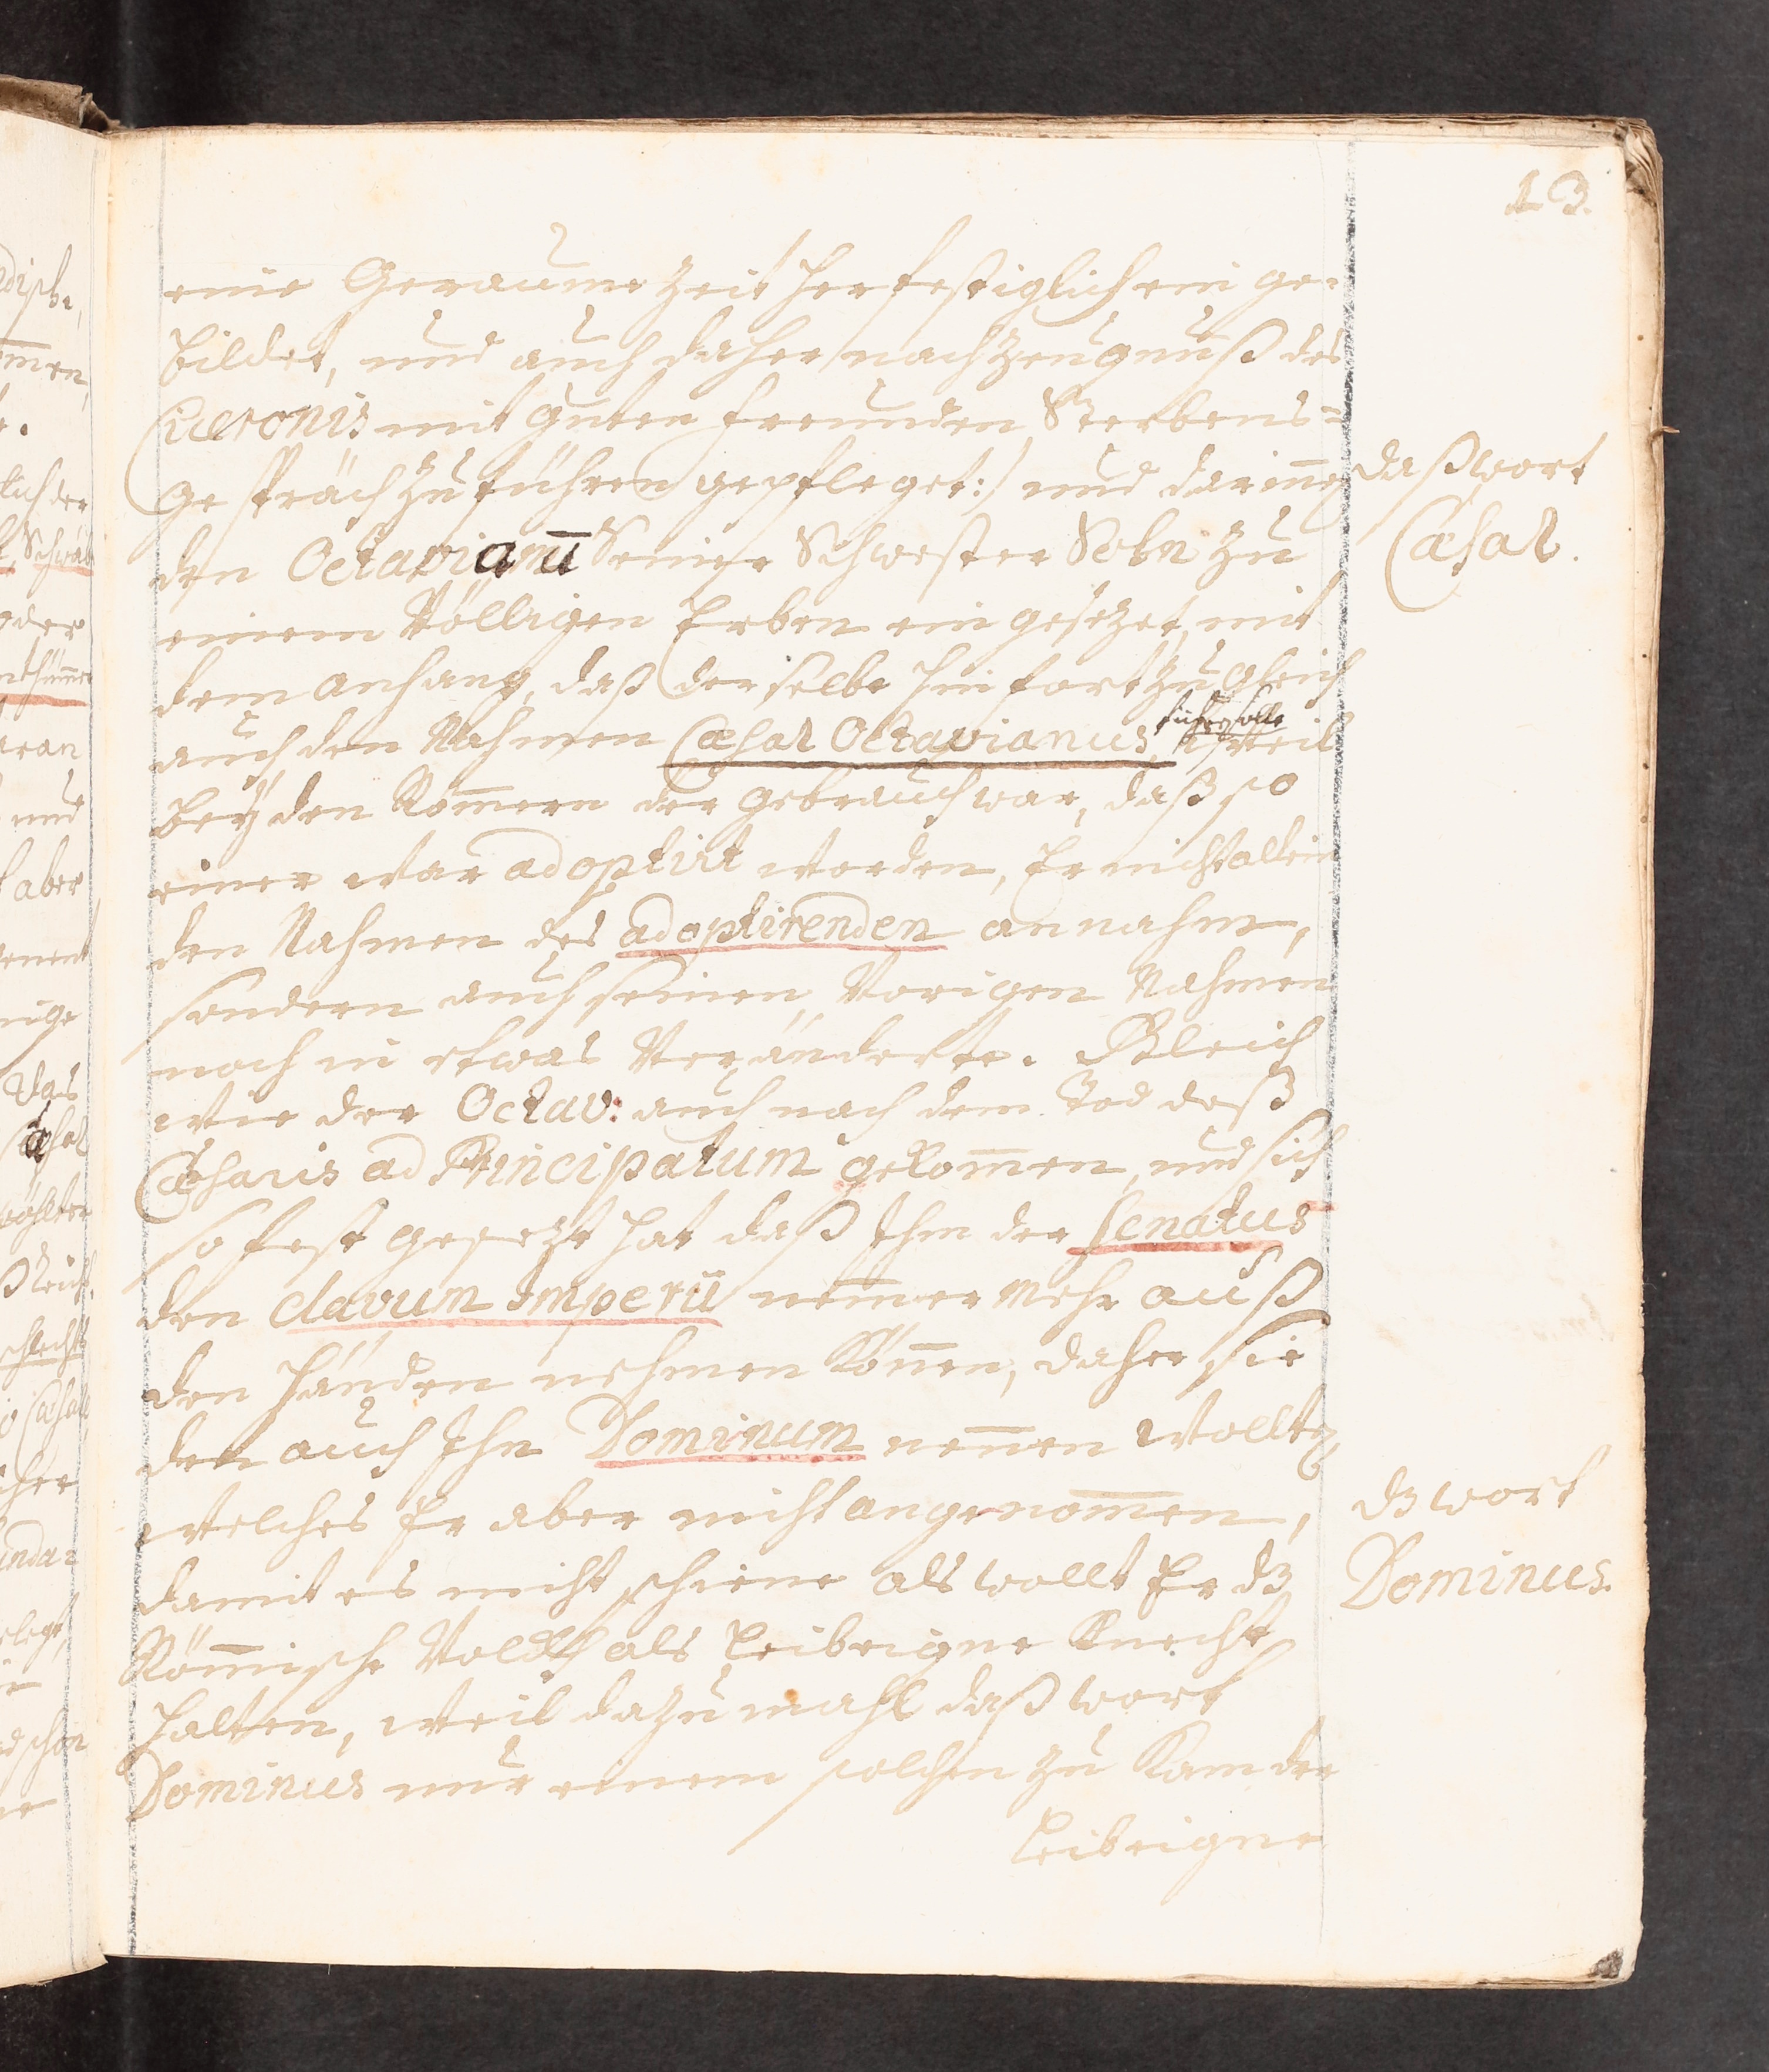 13.
eine Geraume Zeit her festiglich ein ge-
bildet, und auch daher nach Zeugnuß des
Ciceronis mit guten freunden Sterbens=
gespräch zu führen gepfleget:) und darinnen
daß wort
Cæsar.
den Octavianū Seiner Schwester Sohn zu
einem Völligen Erben ein gesezet, mit
dem anhang, daß derselbe hinfort zugleich
auch den Nahmen Cæsar Octavianus führen solle, Weil
bey den Römern der gebrauch war, daß so
einer War adoptirt worden, Er nicht allein
den Nahmen des adoptirenden annahm,
sondern auch seinen Vorigen Nahmen
noch in etwas Veränderte. Gleich
wie der Octav: auch nach dem Tod deß
Cæsaris ad Principatum gekom̄en, und sich
so fest gesezt hat daß Ihm der Senatus
den clavum Imperii nim̄er mehr auß
den händen nehmen kön̄en, daher sie
den auch Ihn Dominum nen̄en Wollten,
welches Er aber nicht angenom̄en,
dz wort
Dominus.
damit es nicht schiene als wollt Er dz
Röm̄ische Volckh als Leibeigne Knecht
halten, weil dazumahl daß wort
Dominus nur einem solchen zu kam, der
Leibeigne